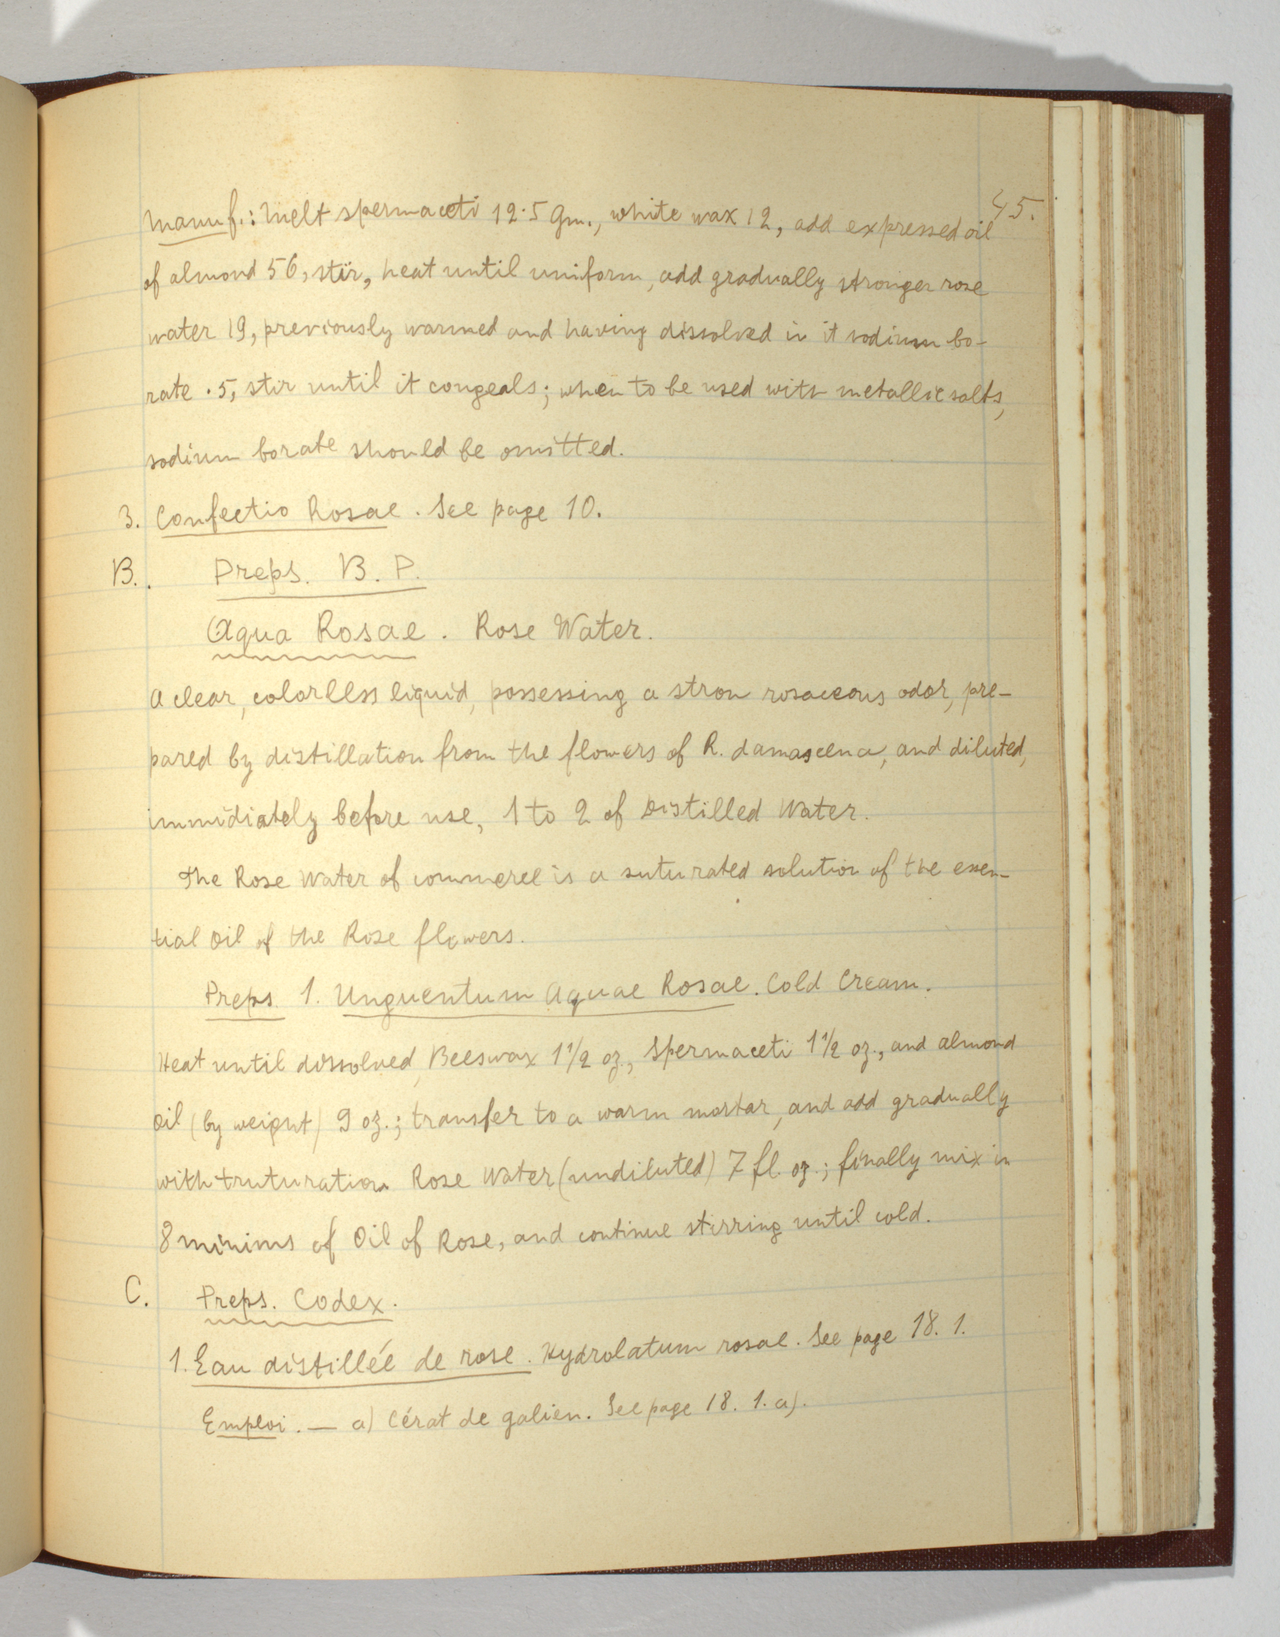 45.
Manuf.: Melt spermaceti 12·5 Gm., white wax 12, add expressed oil
of almond 56, stir, heat until uniform, add gradually stronger rose
water 19, previously warmed and having dissolved in it sodium bo-
rate ·5, stir until it congeals; when to be used with metallic salts,
sodium borate should be omitted.
3. Confectio Rosae. See page 10.
B. Preps. B. P.
Aqua Rosae. Rose Water.
A clear, colorless liquid, possessing a stron rosaceous odor, pre-
pared by distillation from the flowers of R. damascena, and diluted,
immidiately before use, 1 to 2 of Distilled Water.
The Rose Water of commerce is a saturated solution of the essen-
tial Oil of the Rose flowers.
Preps. 1. Unguentum Aquae Rosae. Cold Cream.
Heat until dissolved, Beeswax 1 1/2 oz., Spermaceti 1 1/2 oz., and almond
Oil (by weight) 9 oz.; transfer to a warm mortar, and add gradually
with truturation Rose Water (undiluted) 7 fl. oz.; finally mix in
8 minims of Oil of Rose, and continue stirring until cold.
C. Preps. Codex.
1. Eau distilléé de rose. Hydrolatum rosae. See page 18. 1.
Emploi. — a) Cérat de galien. See page 18. 1. a).